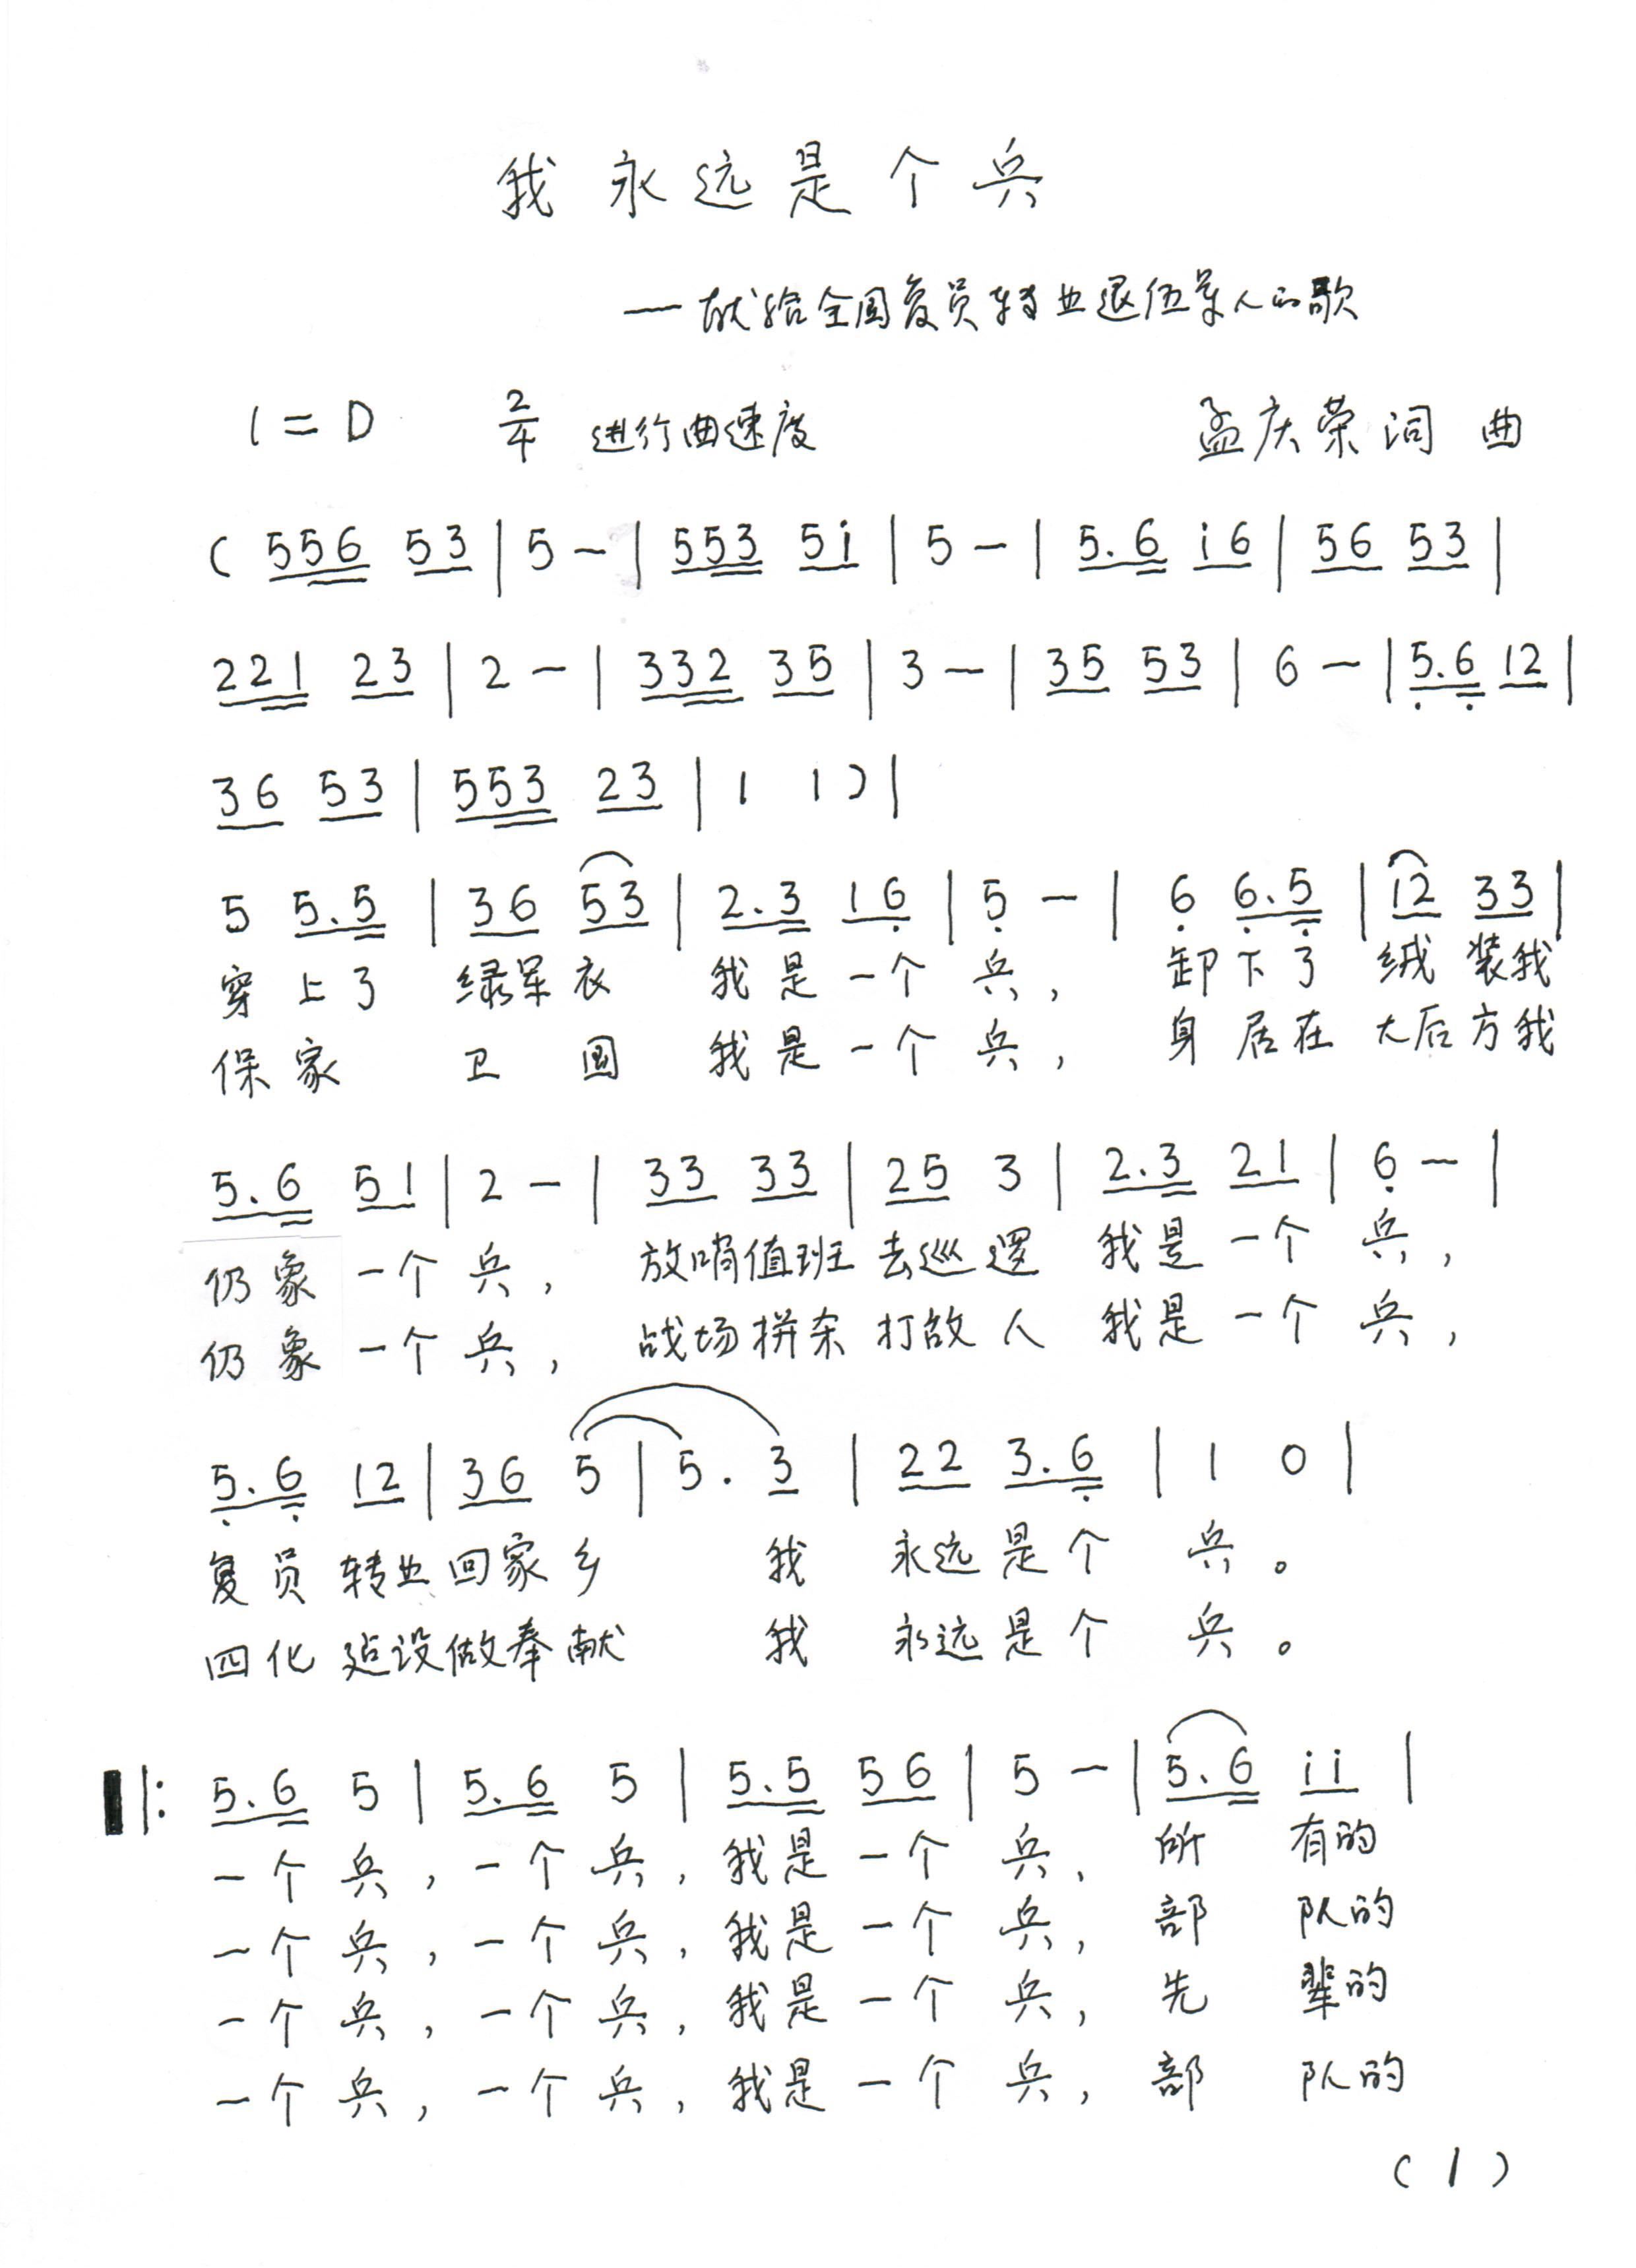 我永远是个兵
—献给全国复员转业退伍军人的歌
1=D 2/4 进行曲速度 孟庆荣词曲
( 556 53 | 5 - | 553 5i | 5 - | 5.6 i6 | 56 53 |
221 23 | 2 - | 332 35 | 3 - | 35 53 | 6 - | 5.6 12 |
36 53 | 553 23 | 1 1 ) |
5 5.5 | 36 53 | 2.3 16 | 5 - | 6 6.5 | 12 33 |
穿上了 绿军衣 我是一个兵, 卸下了 绒装我
保家 卫国 我是一个兵, 身居在 大后方我
5.6 51 | 2 - | 33 33 | 25 3 | 2.3 21 | 6 - |
仍象一个兵, 放哨值班去巡逻 我是一个兵,
仍象一个兵, 战场拼杀打敌人 我是一个兵,
5.6 12 | 36 5 | 5. 3 | 22 3.6 | 1 0 |
复员转业回家乡 我 永远是个 兵。
四化建设做奉献 我 永远是个 兵。
‖: 5.6 5 | 5.6 5 | 5.5 56 | 5 - | 5.6 ii |
一个兵,一个兵,我是一个兵, 所 有的
一个兵,一个兵,我是一个兵, 部 队的
一个兵,一个兵,我是一个兵, 先 辈的
一个兵,一个兵,我是一个兵, 部 队的
(1)